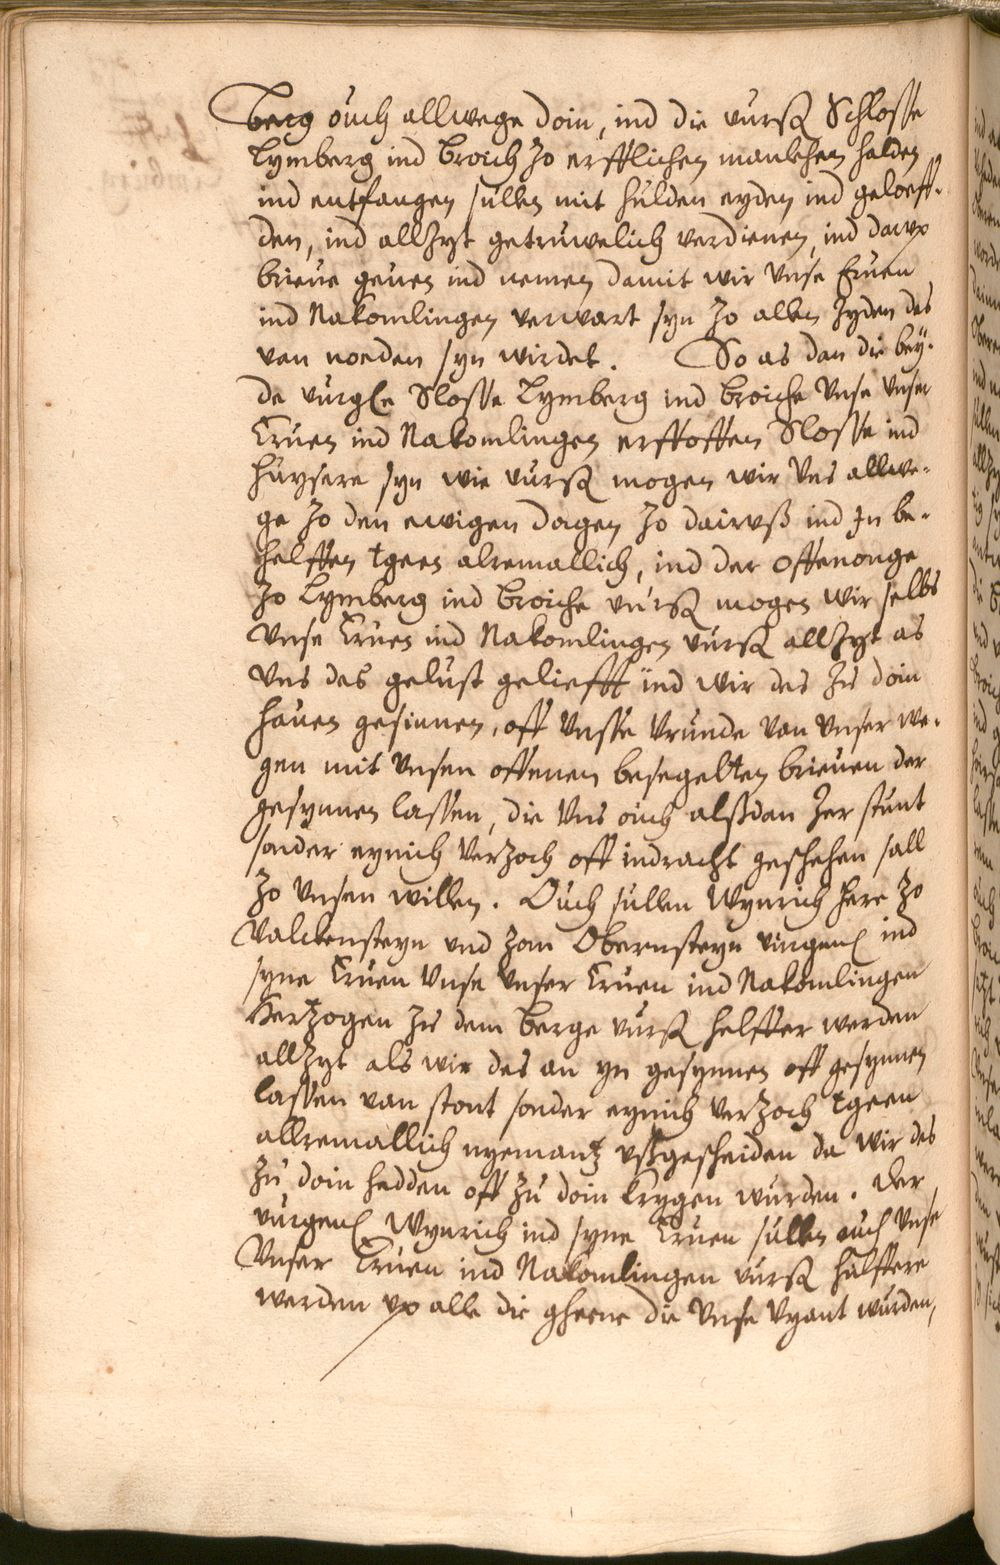 berg ouch allwege doin, ind die vurß Schlosse
Lymberg ind Broich zo erfflichen manlehen halden
ind entfangen sullen mit hulden eyden ind geloeff-
den, ind allzyt getruwelich verdienen, ind darup
brieue geuen ind nemen damit wir Vnse Eruen
ind Nakomlingen verwart syn zo allen zyden des
van noeden syn wirdet. So as dan die bey-
de vurgen Slosse Lymberg ind Broiche Vnse Vnser
Eruen ind Nakomlingen erffoffen Slosse ind
huysere syn wie vurß mogen wir Vns allwe-
ge zo den ewigen dagen zo dairvß ind In be-
helffen tgeen alremallich, ind der offenonge
zo Lymberg ind Broiche vurß mogen wir selbs
Vnse Eruen ind Nakomlingen vurß allzyt as
Vns des gelust geliefft ind wir des zu doin
hauen gesinnen, off Vnsse Vrunde van Vnser we-
gen mit Vnsen offenen besegelten brieuen der
gesynnen lassen, die Vns ouch alßdan zer stunt
sonder eynich Verzoch off indracht geschehen sall
zo Vnsen willen. Ouch sullen Wynrich here zo
Valckensteyn vnd zom Obernsteyn vurgen ind
syne Eruen Vnse Vnser Eruen ind Nakomlingen
Hertzogen zu dem Berge vurß helffer werden
allzyt als wir des an yn gesynnen off gesynnen
lassen van stont sonder eynich Verzoch tgeen
allremallich nyemantz vßgescheiden da wir des
zu doin hedden off zu doin krygen wurden. Der
vurgen Wynrich ind syne Eruen sullen auch Vnse
Vnser Eruen ind Nakomlingen vurß hulffere
werden up alle die gheene die Vnse Vyant wurden,